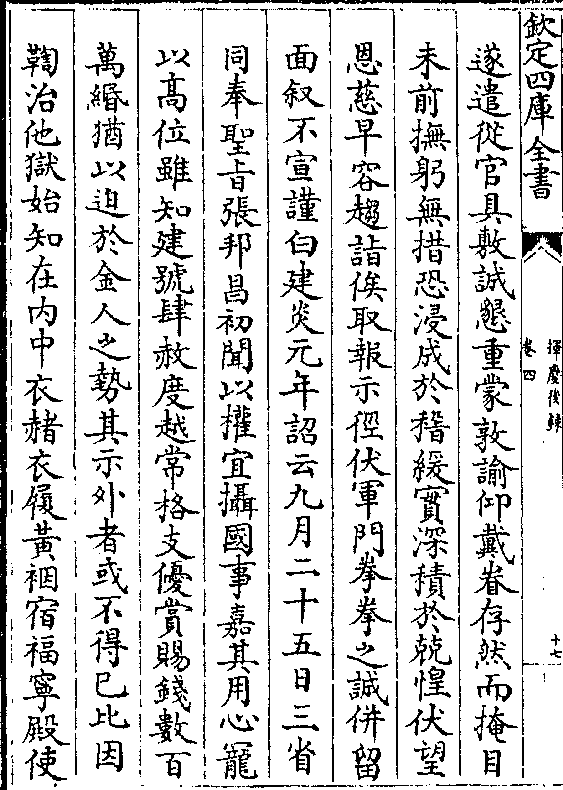 欽定四庫全書
揮麈後録
卷四
十七
遂遣從官具敷誠懇重蒙敦諭仰戴眷存然而掩目
未前撫躬無措恐浸成於稽緩實深積於兢惶伏望
恩慈早容趨詣俟取報示徑伏軍門拳拳之誠併留
面叙不宣謹白建炎元年詔云九月二十五日三省
同奉聖旨張邦昌初聞以權宜攝國事嘉其用心寵
以髙位雖知建號肆赦度越常格支優賞賜錢數百
萬緡猶以迫於金人之勢其示外者或不得已比因
鞫治他獄始知在内中衣赭衣履黄裀宿福寧殿使